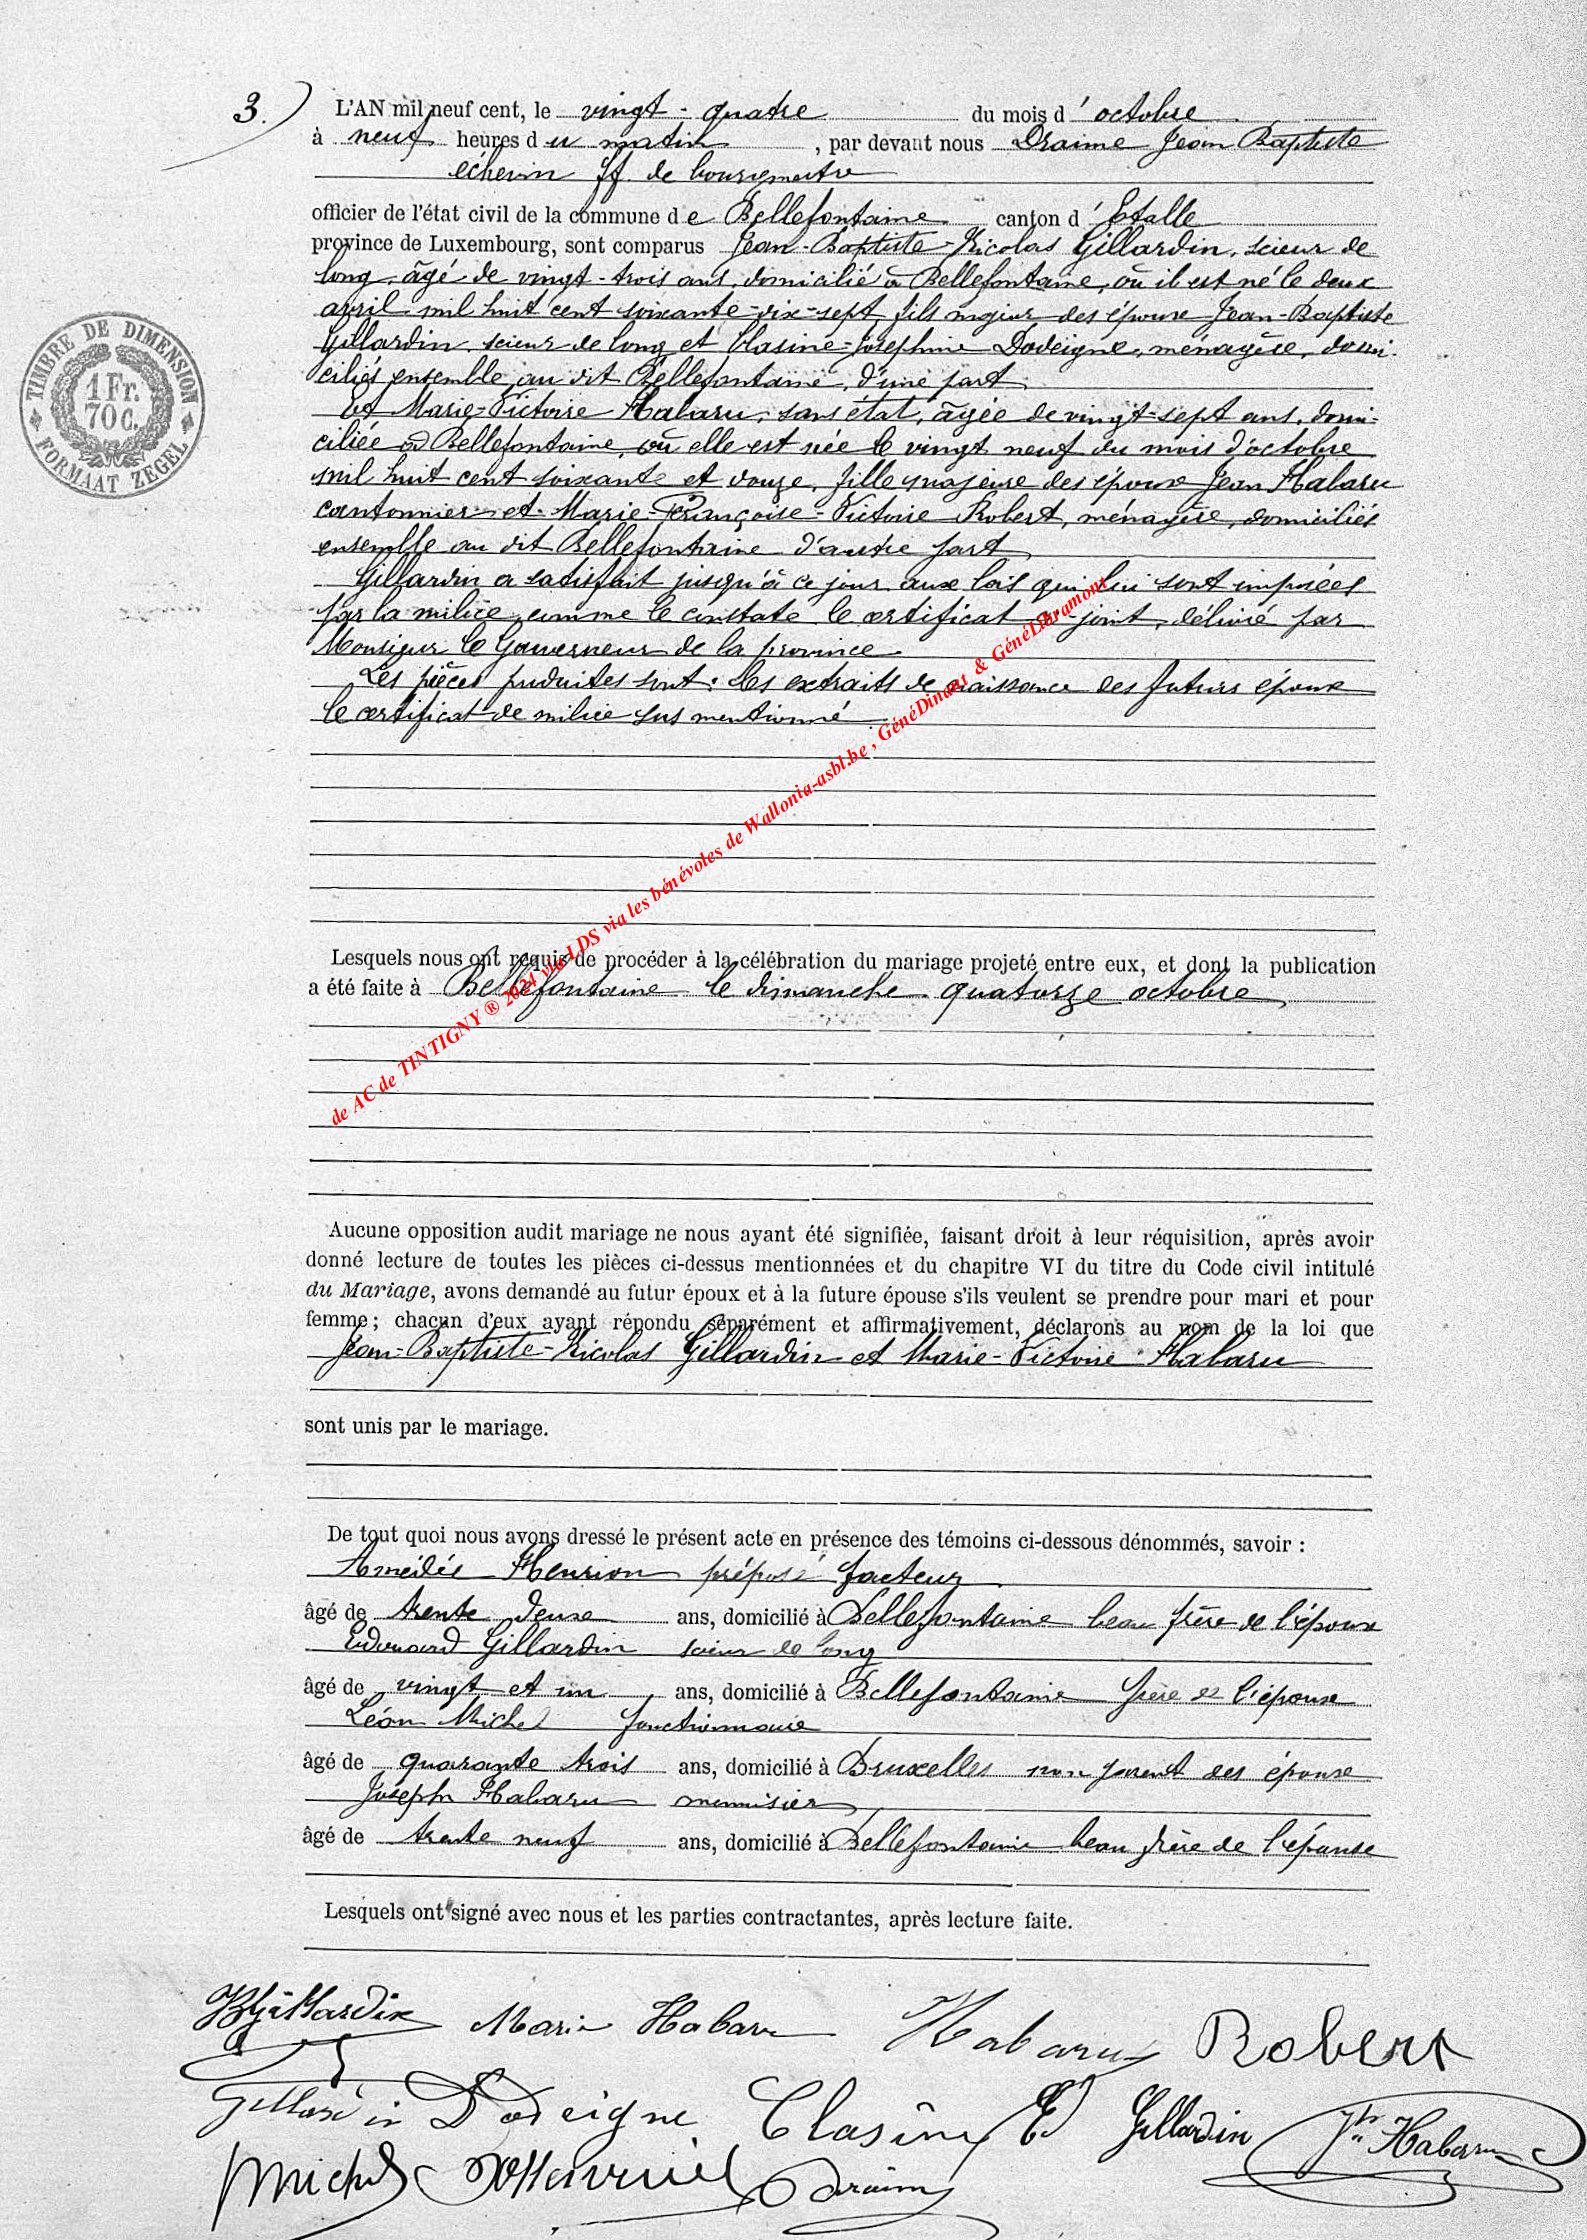 3.) L'AN mil neuf cent, le vingt-quatre du mois d'octobre
à neuf heures du matin, par devant nous Draime Jean Baptiste
échevin ff. de bourgmestre
officier de l'état civil de la commune de Bellefontaine canton d'Etalle
province de Luxembourg, sont comparus Jean-Baptiste-Nicolas Gillardin, scieur de
long, âgé de vingt-trois ans, domicilié à Bellefontaine, où il est né le deux
avril mil huit cent soixante-dix-sept fils majeur des époux Jean-Baptiste
Gillardin, scieur de long et Clasine-Joséphine Dodeigne, ménagère, domi-
ciliés ensemble au dit Bellefontaine, d'une part
Et Marie-Victoire Habaru, sans état, âgée de vingt-sept ans, domi-
ciliée à Bellefontaine, où elle est née le vingt neuf du mois d'octobre
mil huit cent soixante et douze, fille majeure des époux Jean Habaru
cantonnier et Marie-Françoise-Victoire Robert, ménagère, domiciliés
ensemble au dit Bellefontaine d'autre part
Gillardin a satisfait jusqu'à ce jour aux lois qui lui sont imposées
par la milice, comme le constate le certificat ci-joint, délivré par
Monsieur le Gouverneur de la province.
Les pièces produites sont: les extraits de naissance des futurs époux
le certificat de milice sus mentionné
TIMBRE DE DIMENSION
1 Fr.
70 C.
FORMAAT ZEGEL
de AC de TINTIGNY ® 2024 via LDS via les bénévoles de Wallonia-asbl.be, GénéDinant & GénéLibramont
Lesquels nous ont requis de procéder à la célébration du mariage projeté entre eux, et dont la publication
a été faite à Bellefontaine le dimanche quatorze octobre
Aucune opposition audit mariage ne nous ayant été signifiée, faisant droit à leur réquisition, après avoir
donné lecture de toutes les pièces ci-dessus mentionnées et du chapitre VI du titre du Code civil intitulé
du Mariage, avons demandé au futur époux et à la future épouse s'ils veulent se prendre pour mari et pour
femme; chacun d'eux ayant répondu séparément et affirmativement, déclarons au nom de la loi que
Jean-Baptiste-Nicolas Gillardin et Marie-Victoire Habaru
sont unis par le mariage.
De tout quoi nous avons dressé le présent acte en présence des témoins ci-dessous dénommés, savoir :
Amédée Henrion préposé facteur
âgé de trente deux ans, domicilié à Bellefontaine beau frère de l'époux
Edouard Gillardin scieur de long
âgé de vingt et un ans, domicilié à Bellefontaine frère de l'époux
Léon Michel fonctionnaire
âgé de quarante trois ans, domicilié à Bruxelles non parent des époux
Joseph Habaru menuisier
âgé de trente neuf ans, domicilié à Bellefontaine beau frère de l'épouse
Lesquels ont signé avec nous et les parties contractantes, après lecture faite.
Gillardin Marie Habaru Habaru Robert
Gillardin Dodeigne Clasine Ed Gillardin Jh Habaru
Michel Henrion Draime